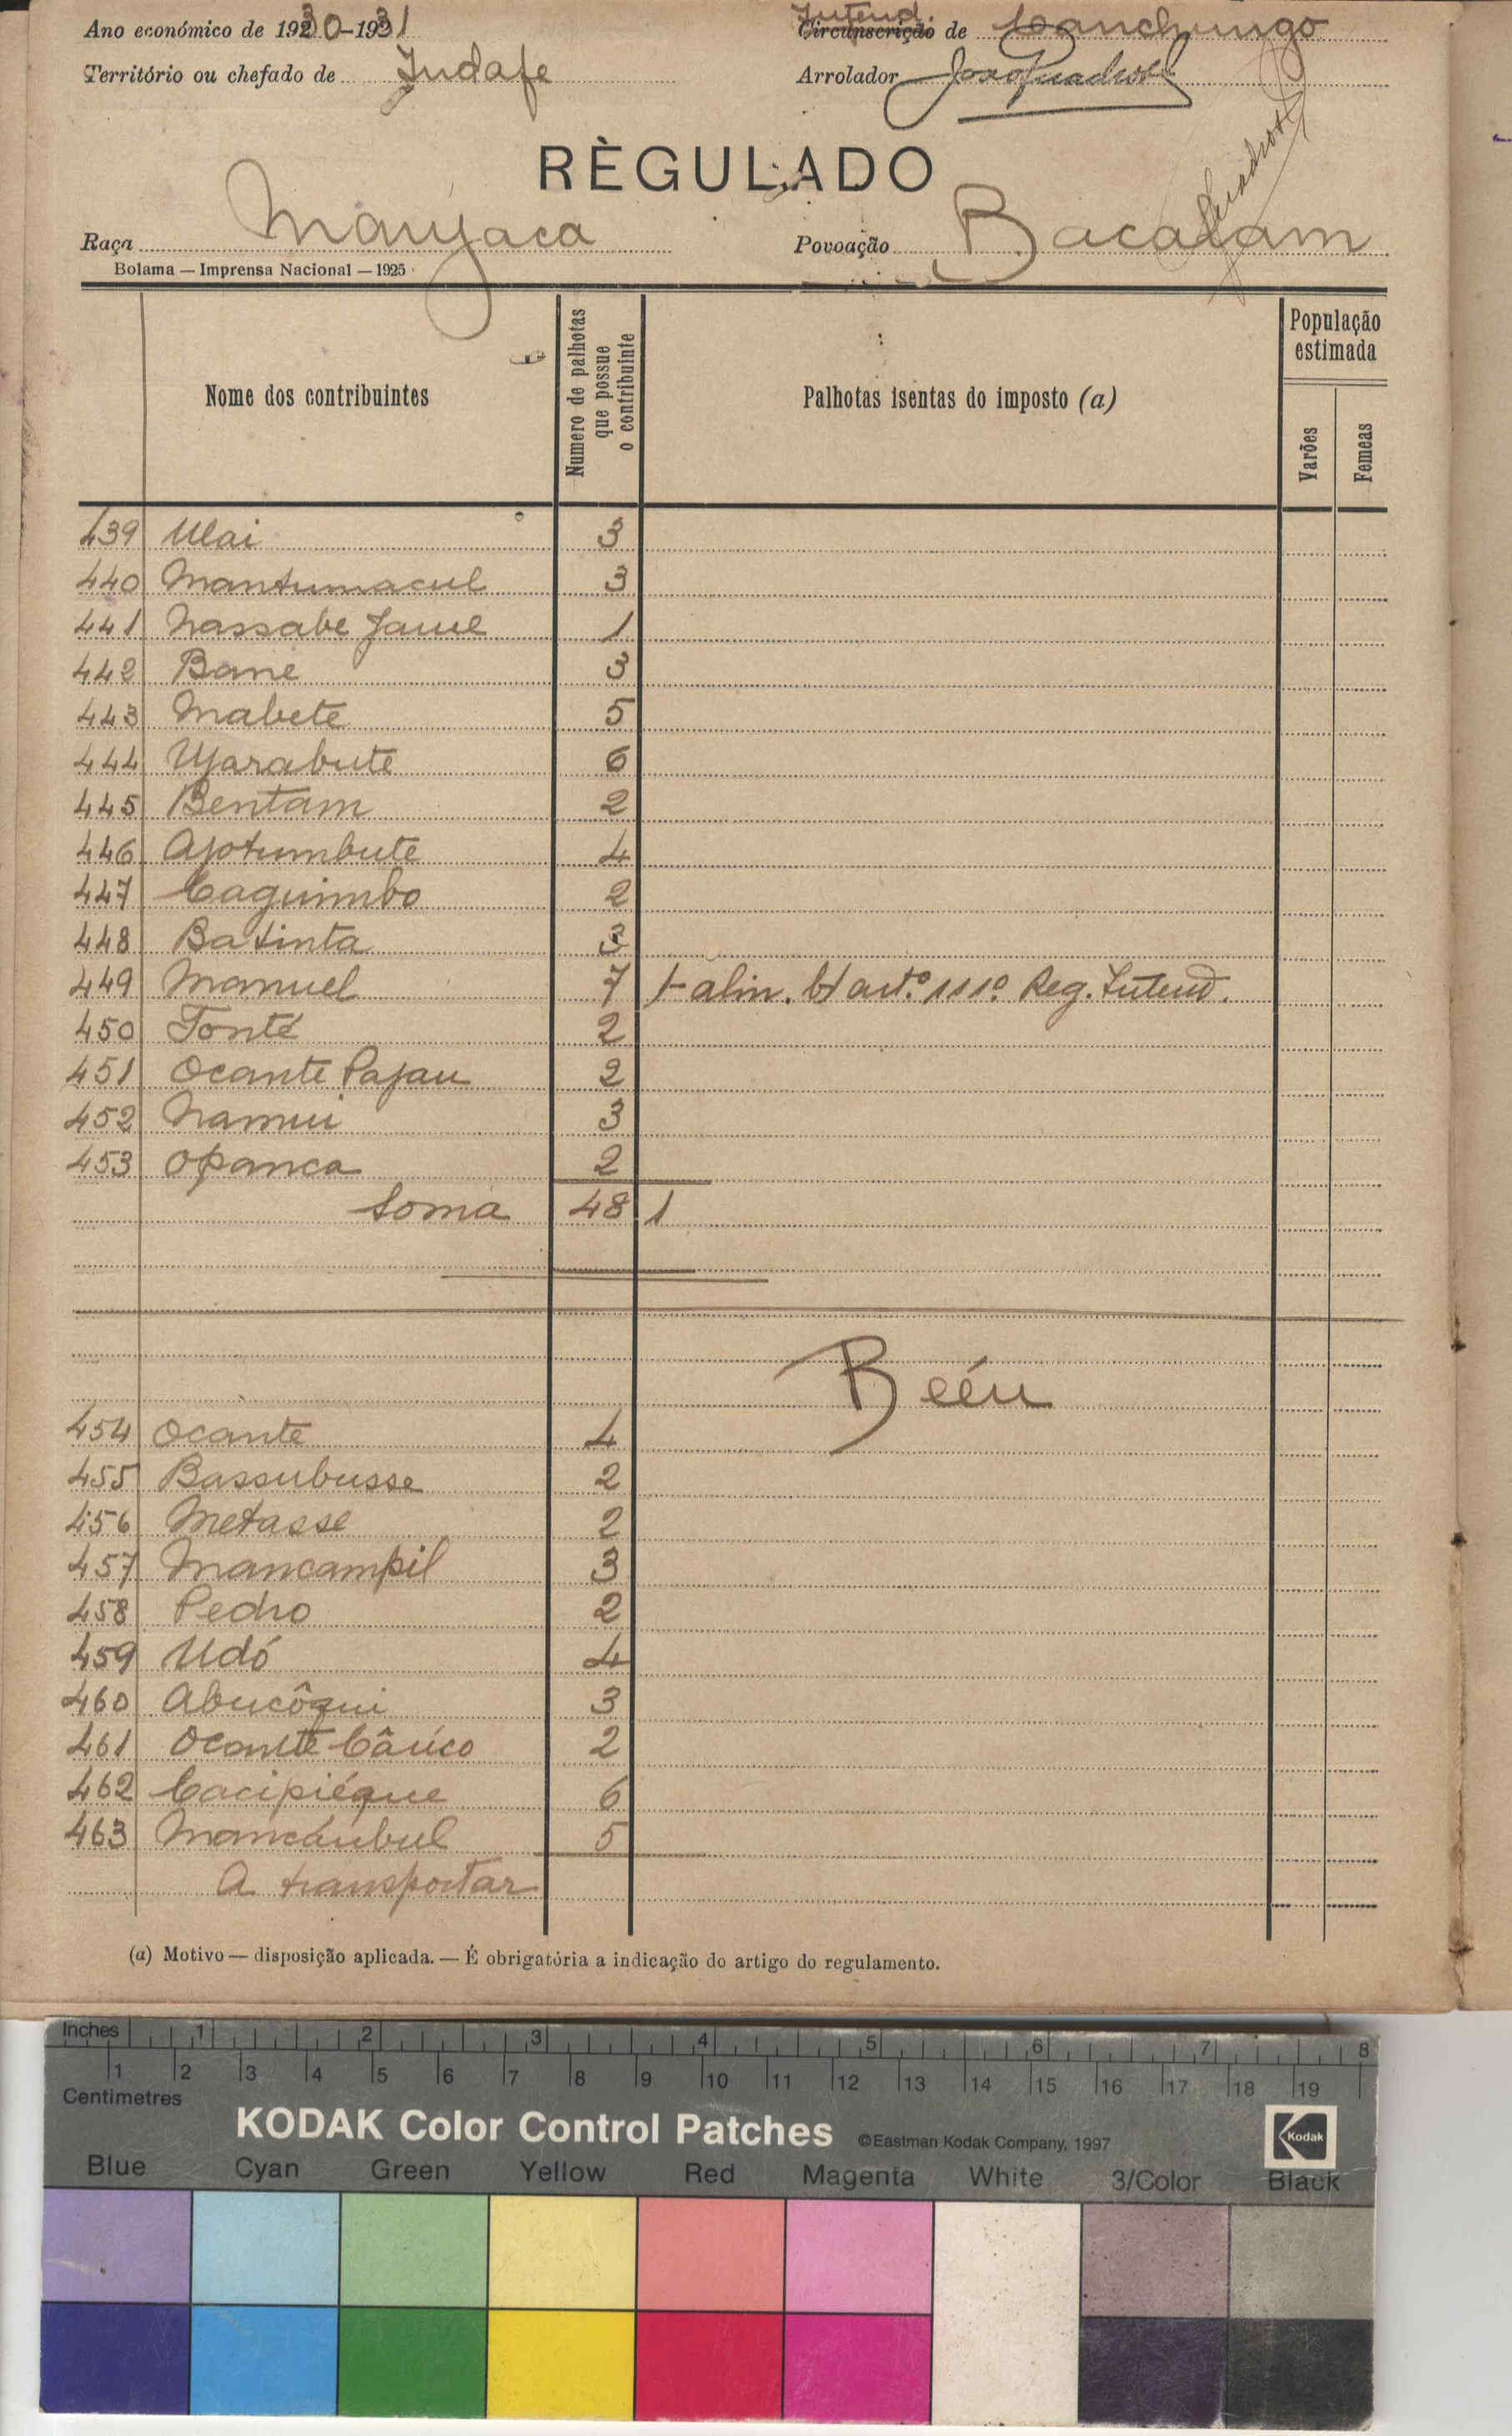 Ano económico de 1930-1931 Intend. Circunscrição de Canchungo
Território ou chefado de Indafe Arrolador
RÈGULADO
Raça Manjaca Povoação Bacalam
Bolama — Imprensa Nacional — 1925
Nome dos contribuintes
Numero de palhotas que possue o contribuinte
Palhotas isentas do imposto (a)
População estimada
Varões
Femeas
439 Ulai 3
440 Mantumacul 3
441 Nassabe Jaule 1
442 Bane 3
443 Mabete 5
444 Uparabute 6
445 Bentam 2
446 Apotumbute 4
447 Caguimbo 2
448 Batinta 3
449 Manuel 7 1-alin. b) artº 111º Reg. Intend.
450 Tonté 2
451 Ocante Pajau 2
452 Namui 3
453 Opanca 2
Soma 48 1
Beéu
454 Ocante 4
455 Bassubusse 2
456 Metasse 2
457 Mancampil 3
458 Pedro 2
459 Udó 4
460 Abucôqui 3
461 Ocante Câúco 2
462 Cacipiéque 6
463 Mancáubul 5
A transportar
(a) Motivo — disposição aplicada. — É obrigatória a indicação do artigo do regulamento.
Inches 1 2 3 4 5 6 7 8
1 2 3 4 5 6 7 8 9 10 11 12 13 14 15 16 17 18 19
Centimetres
KODAK Color Control Patches ©Eastman Kodak Company, 1997 Kodak
Blue Cyan Green Yellow Red Magenta White 3/Color Black